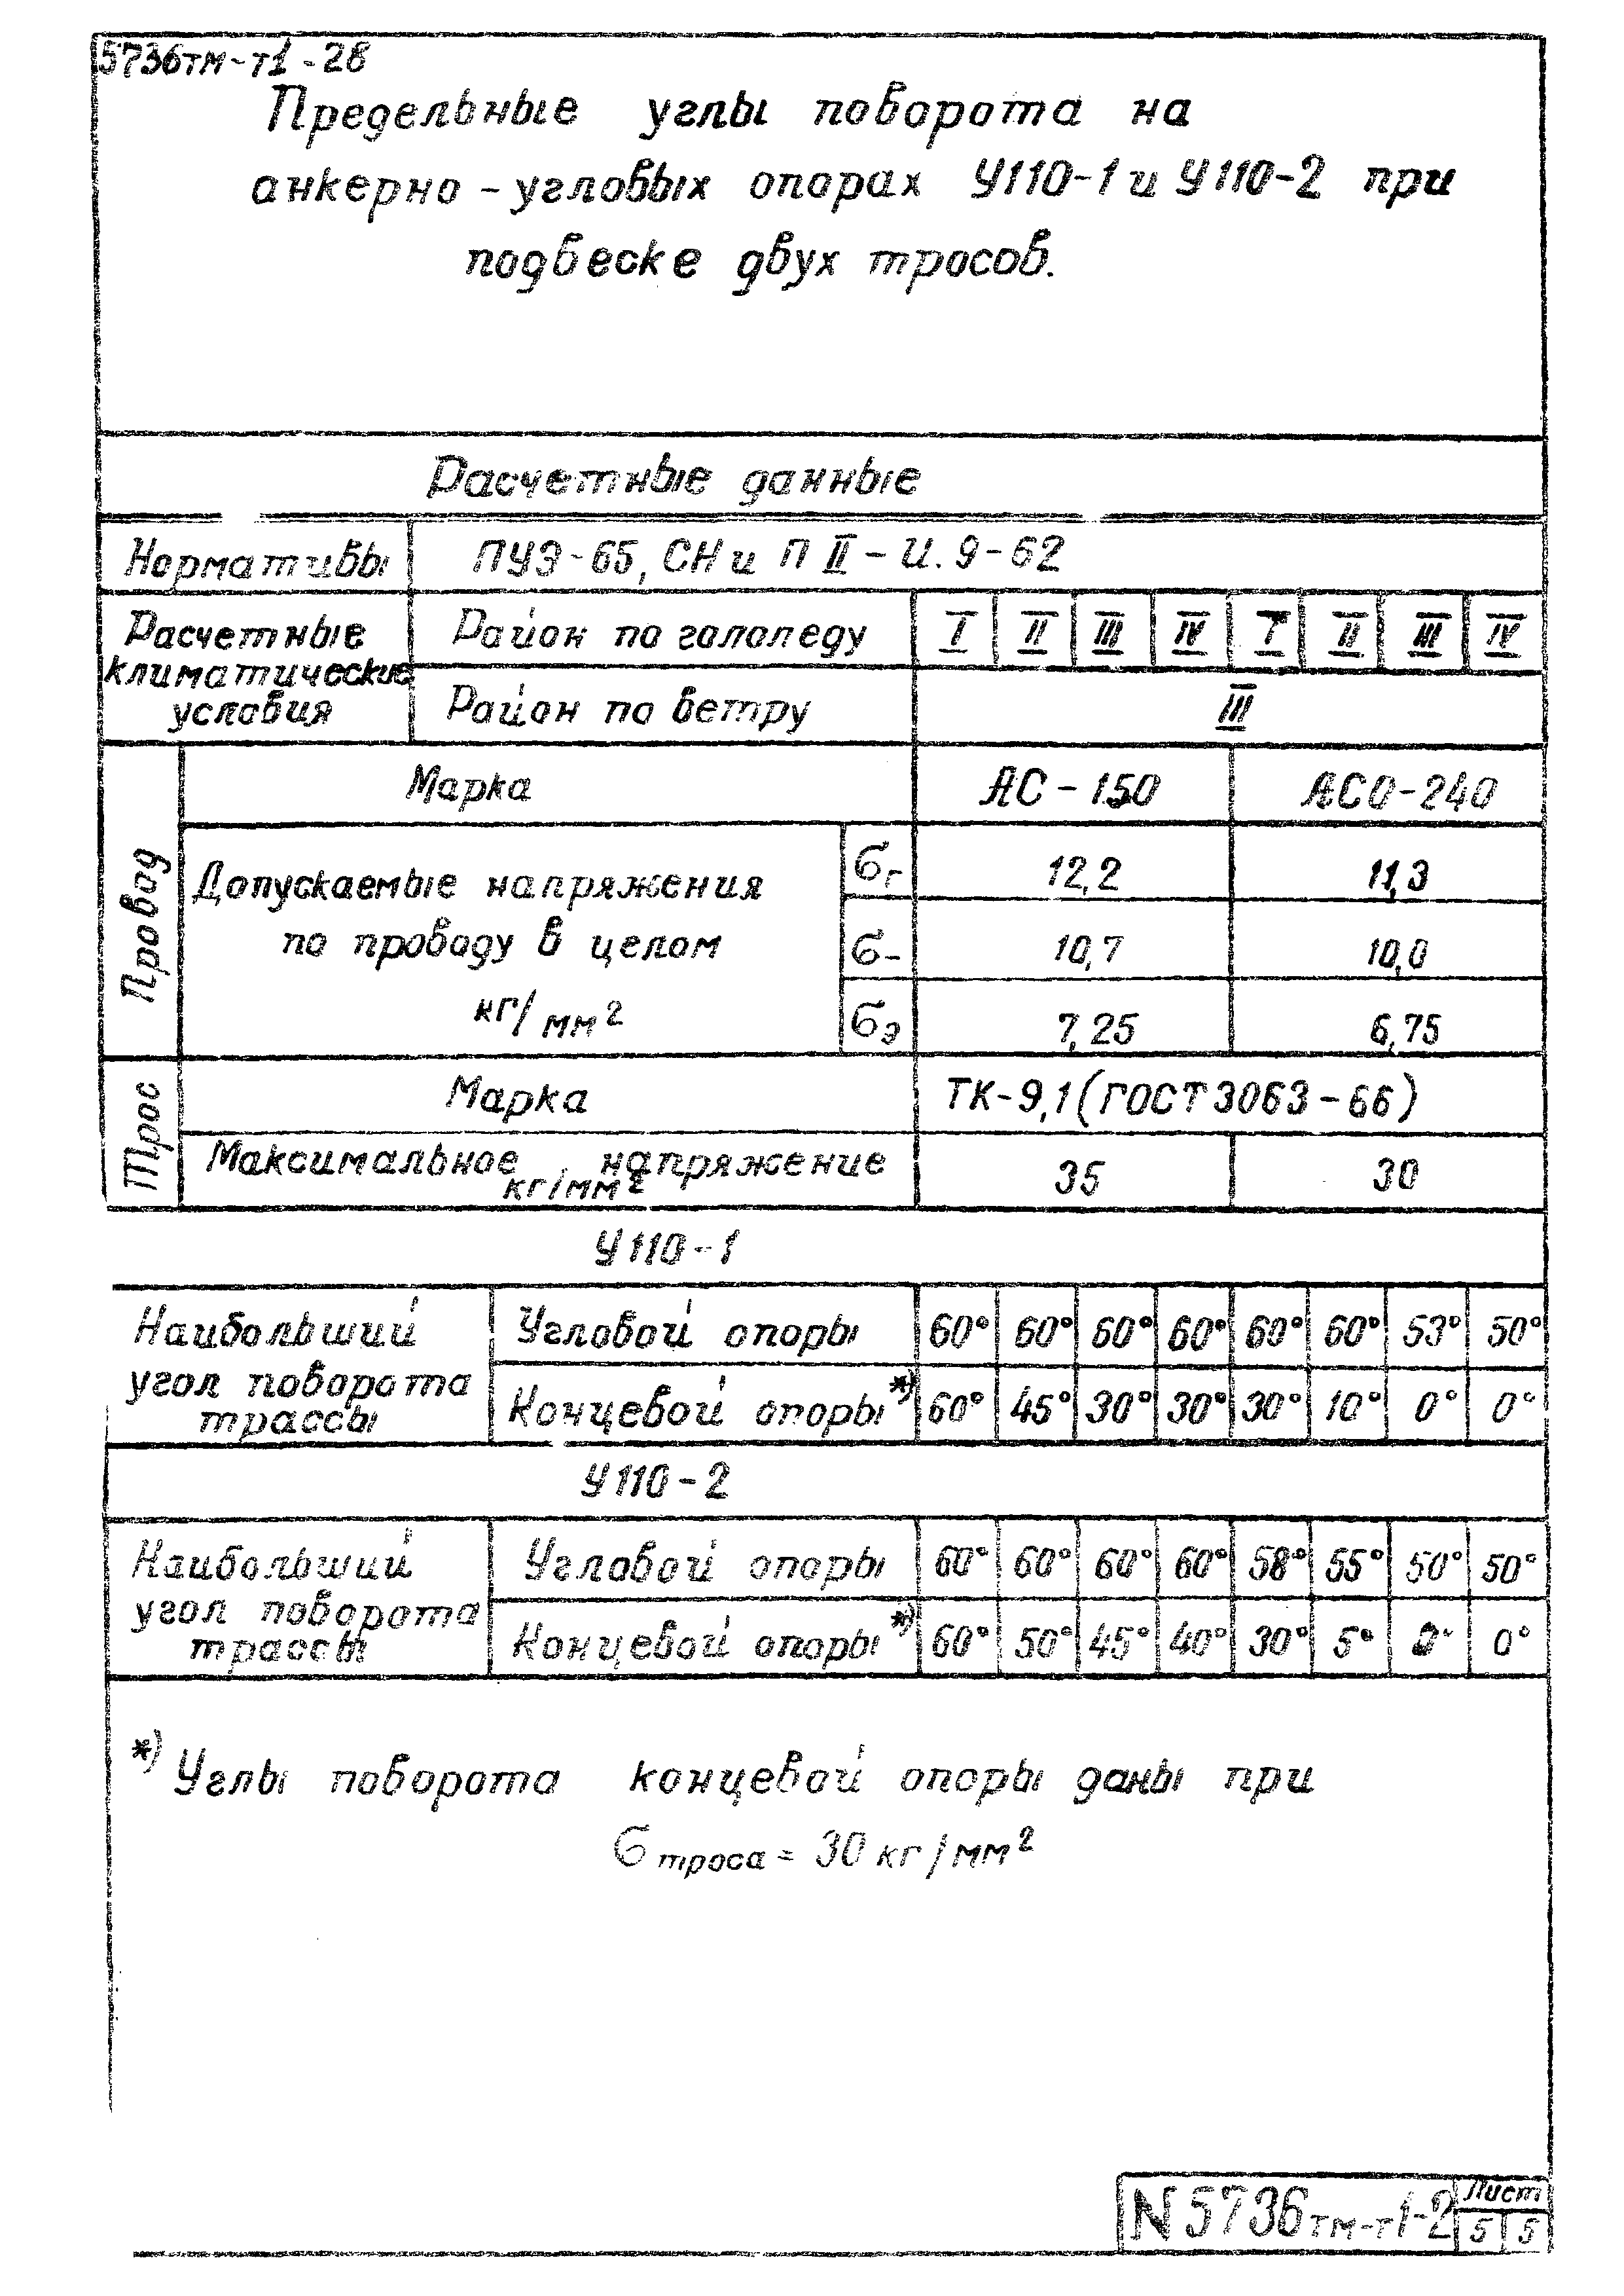 5736тм-т1-28
Предельные углы поворота на
анкерно-угловых опорах У110-1 и У110-2 при
подвеске двух тросов.
Расчетные данные
Нормативы ПУЭ-65, СНиП II-И.9-62
Расчетные климатические условия
Район по гололеду I II III IV I II III IV
Район по ветру III
Провод
Марка АС-150 АСО-240
Допускаемые напряжения
по проводу в целом
кг/мм²
σг 12,2 11,3
σ- 10,7 10,0
σэ 7,25 6,75
Трос
Марка ТК-9,1 (ГОСТ 3063-66)
Максимальное напряжение 35 30
кг/мм²
У110-1
Наибольший
угол поворота
трассы
Угловой опоры 60° 60° 60° 60° 60° 60° 53° 50°
Концевой опоры*) 60° 45° 30° 30° 30° 10° 0° 0°
У110-2
Наибольший
угол поворота
трассы
Угловой опоры 60° 60° 60° 60° 58° 55° 50° 50°
Концевой опоры*) 60° 50° 45° 40° 30° 5° 0° 0°
*) Углы поворота концевой опоры даны при
σ троса = 30 кг/мм²
N 5736тм-т1-2
Лист
5 5